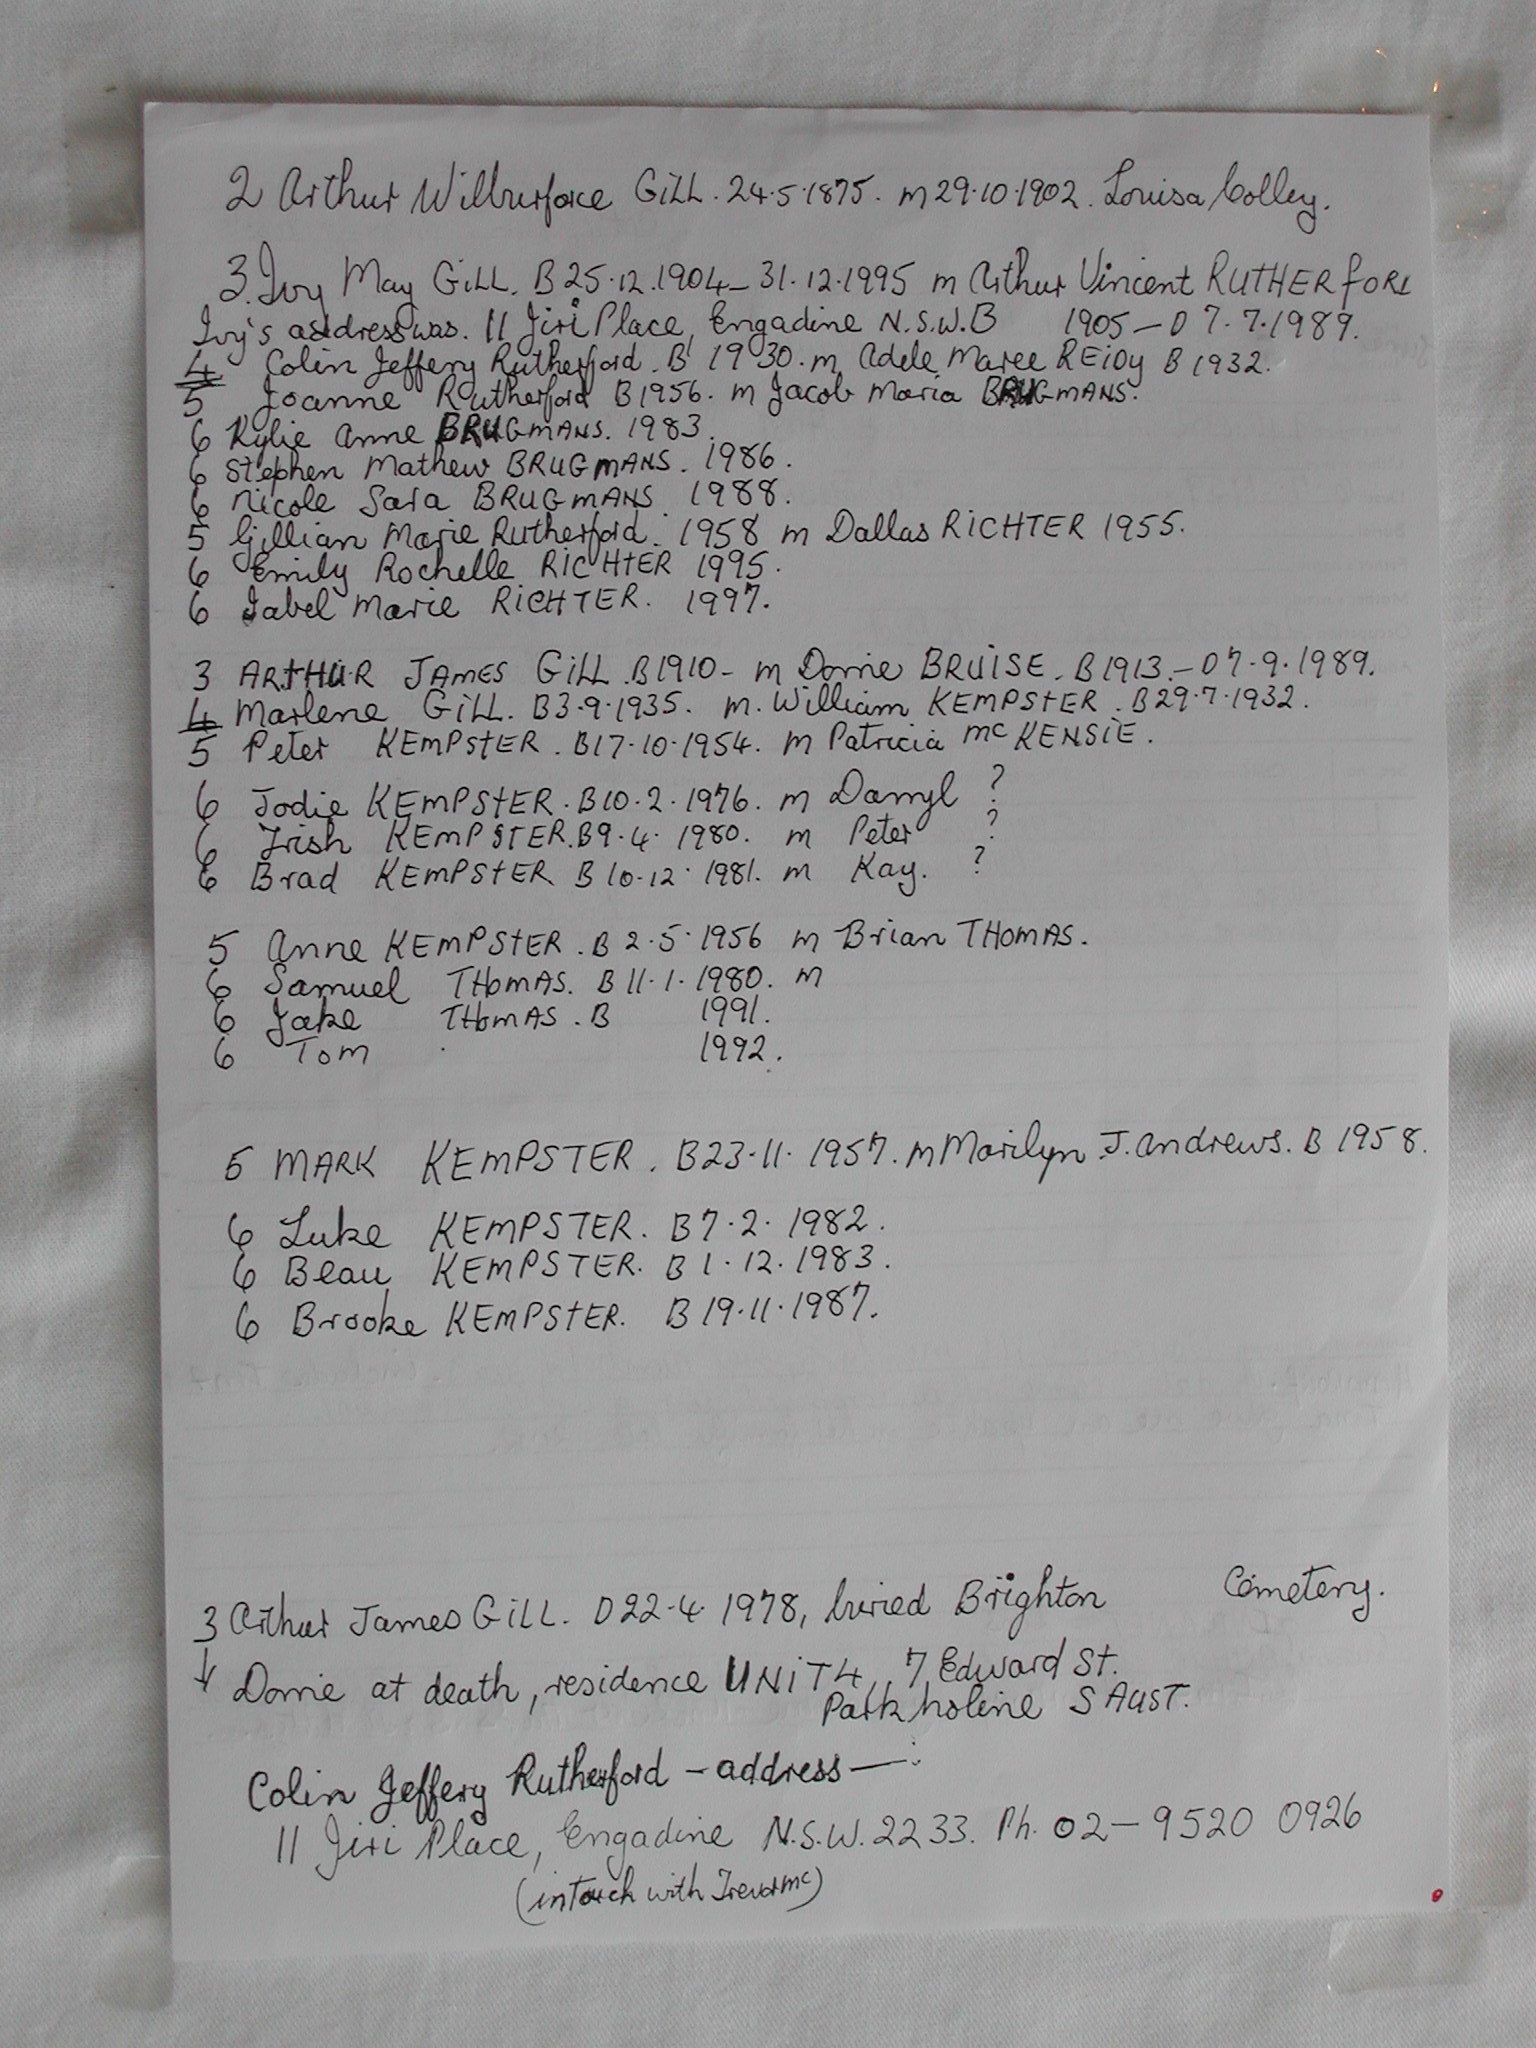 2 Arthur Wilburforce GiLL. 24.5.1875. m 29.10.1902. Louisa Colley.
3. Ivy May GiLL. B 25.12.1904 – 31.12.1995 m Arthur Vincent RUTHERfORD
Ivy's address was. 11 Jiri Place, Engadine N.S.W. B 1905 – D 7.7.1989.
4 Colin Jeffery Rutherford. B 1930. m Adele Maree REiDy B 1932.
5 Joanne Rutherford B 1956. m Jacob Maria BRUGMANS.
6 Kylie Anne BRUGMANS. 1983.
6 Stephen Mathew BRUGMANS. 1986.
6 Nicole Sara BRUGMANS. 1988.
5 Gillian Marie Rutherford. 1958 m Dallas RiCHTER 1955.
6 Emily Rochelle RiCHtER 1995.
6 Isabel Marie RiCHTER. 1997.
3 ARtHUR JAMES GiLL. B 1910 – m Dorrie BRUiSE. B 1913. – D 7.9.1989.
4 Marlene GiLL. B 3.9.1935. m. William KEMPStER. B 29.7.1932.
5 Peter KEMPStER. B 17.10.1954. m Patricia Mc KENSiE.
6 Jodie KEMPStER. B 10.2.1976. m Darryl ?
6 Trish KEMPSTER. B 9.4.1980. m Peter ?
6 Brad KEMPStER B 10.12.1981. m Kay. ?
5 Anne KEMPStER. B 2.5.1956 m Brian THOMAS.
6 Samuel THOMAS. B 11.1.1980. m
6 Jake THOMAS. B 1991.
6 Tom 1992.
5 MARK KEMPSTER. B 23.11.1957. m Marilyn J. Andrews. B 1958.
6 Luke KEMPSTER. B 7.2.1982.
6 Beau KEMPSTER. B 1.12.1983.
6 Brooke KEMPStER. B 19.11.1987.
3 Arthur James GiLL. D 22.4.1978, buried Brighton Cemetery.
↓ Dorrie at death, residence UNiT 4, 7 Edward St.
Parkholine S AUST.
Colin Jeffery Rutherford – address –:
11 Jiri Place, Engadine N.S.W. 2233. Ph. 02 – 9520 0926
(in touch with Trevor Mc)